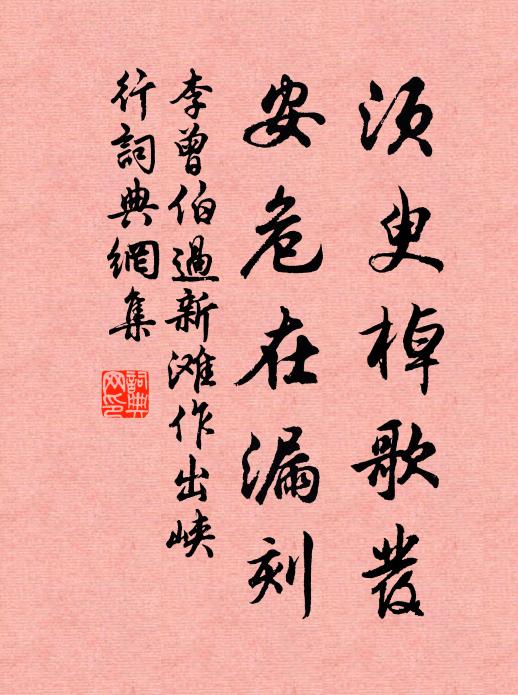 须臾棹歌發
安危在漏刻
李曾伯過新滩作出峡
行詞典網集
詞典
网印